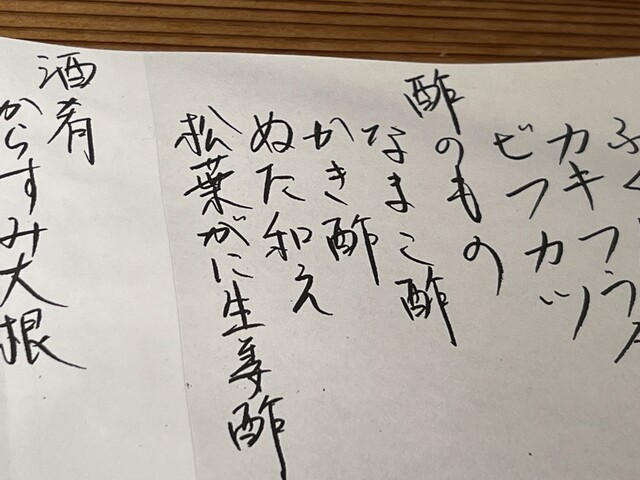 カキフライ
ビフカツ
酢のもの
なまこ酢
かき酢
ぬた和え
松葉がに生姜酢
酒肴
からすみ大根